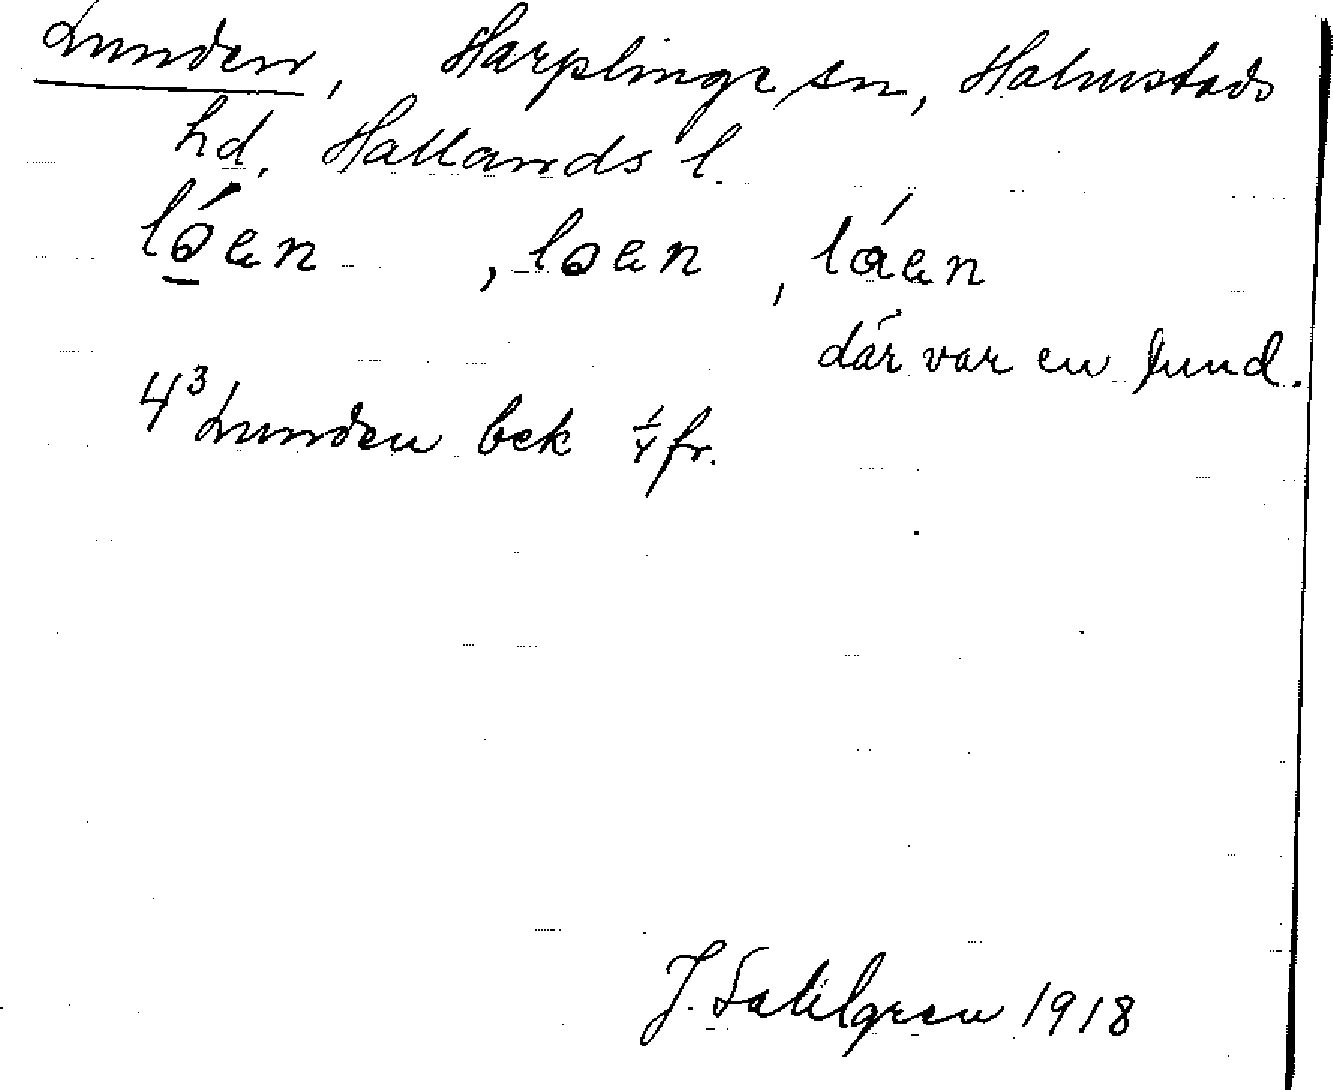 Lunden, Harplinge sn, Halmstads
hd, Hallands l.
lǿen, løen, lǻen
där var en lund.
4³ Lunden bek ¼ fr.
J. Sahlgren 1918